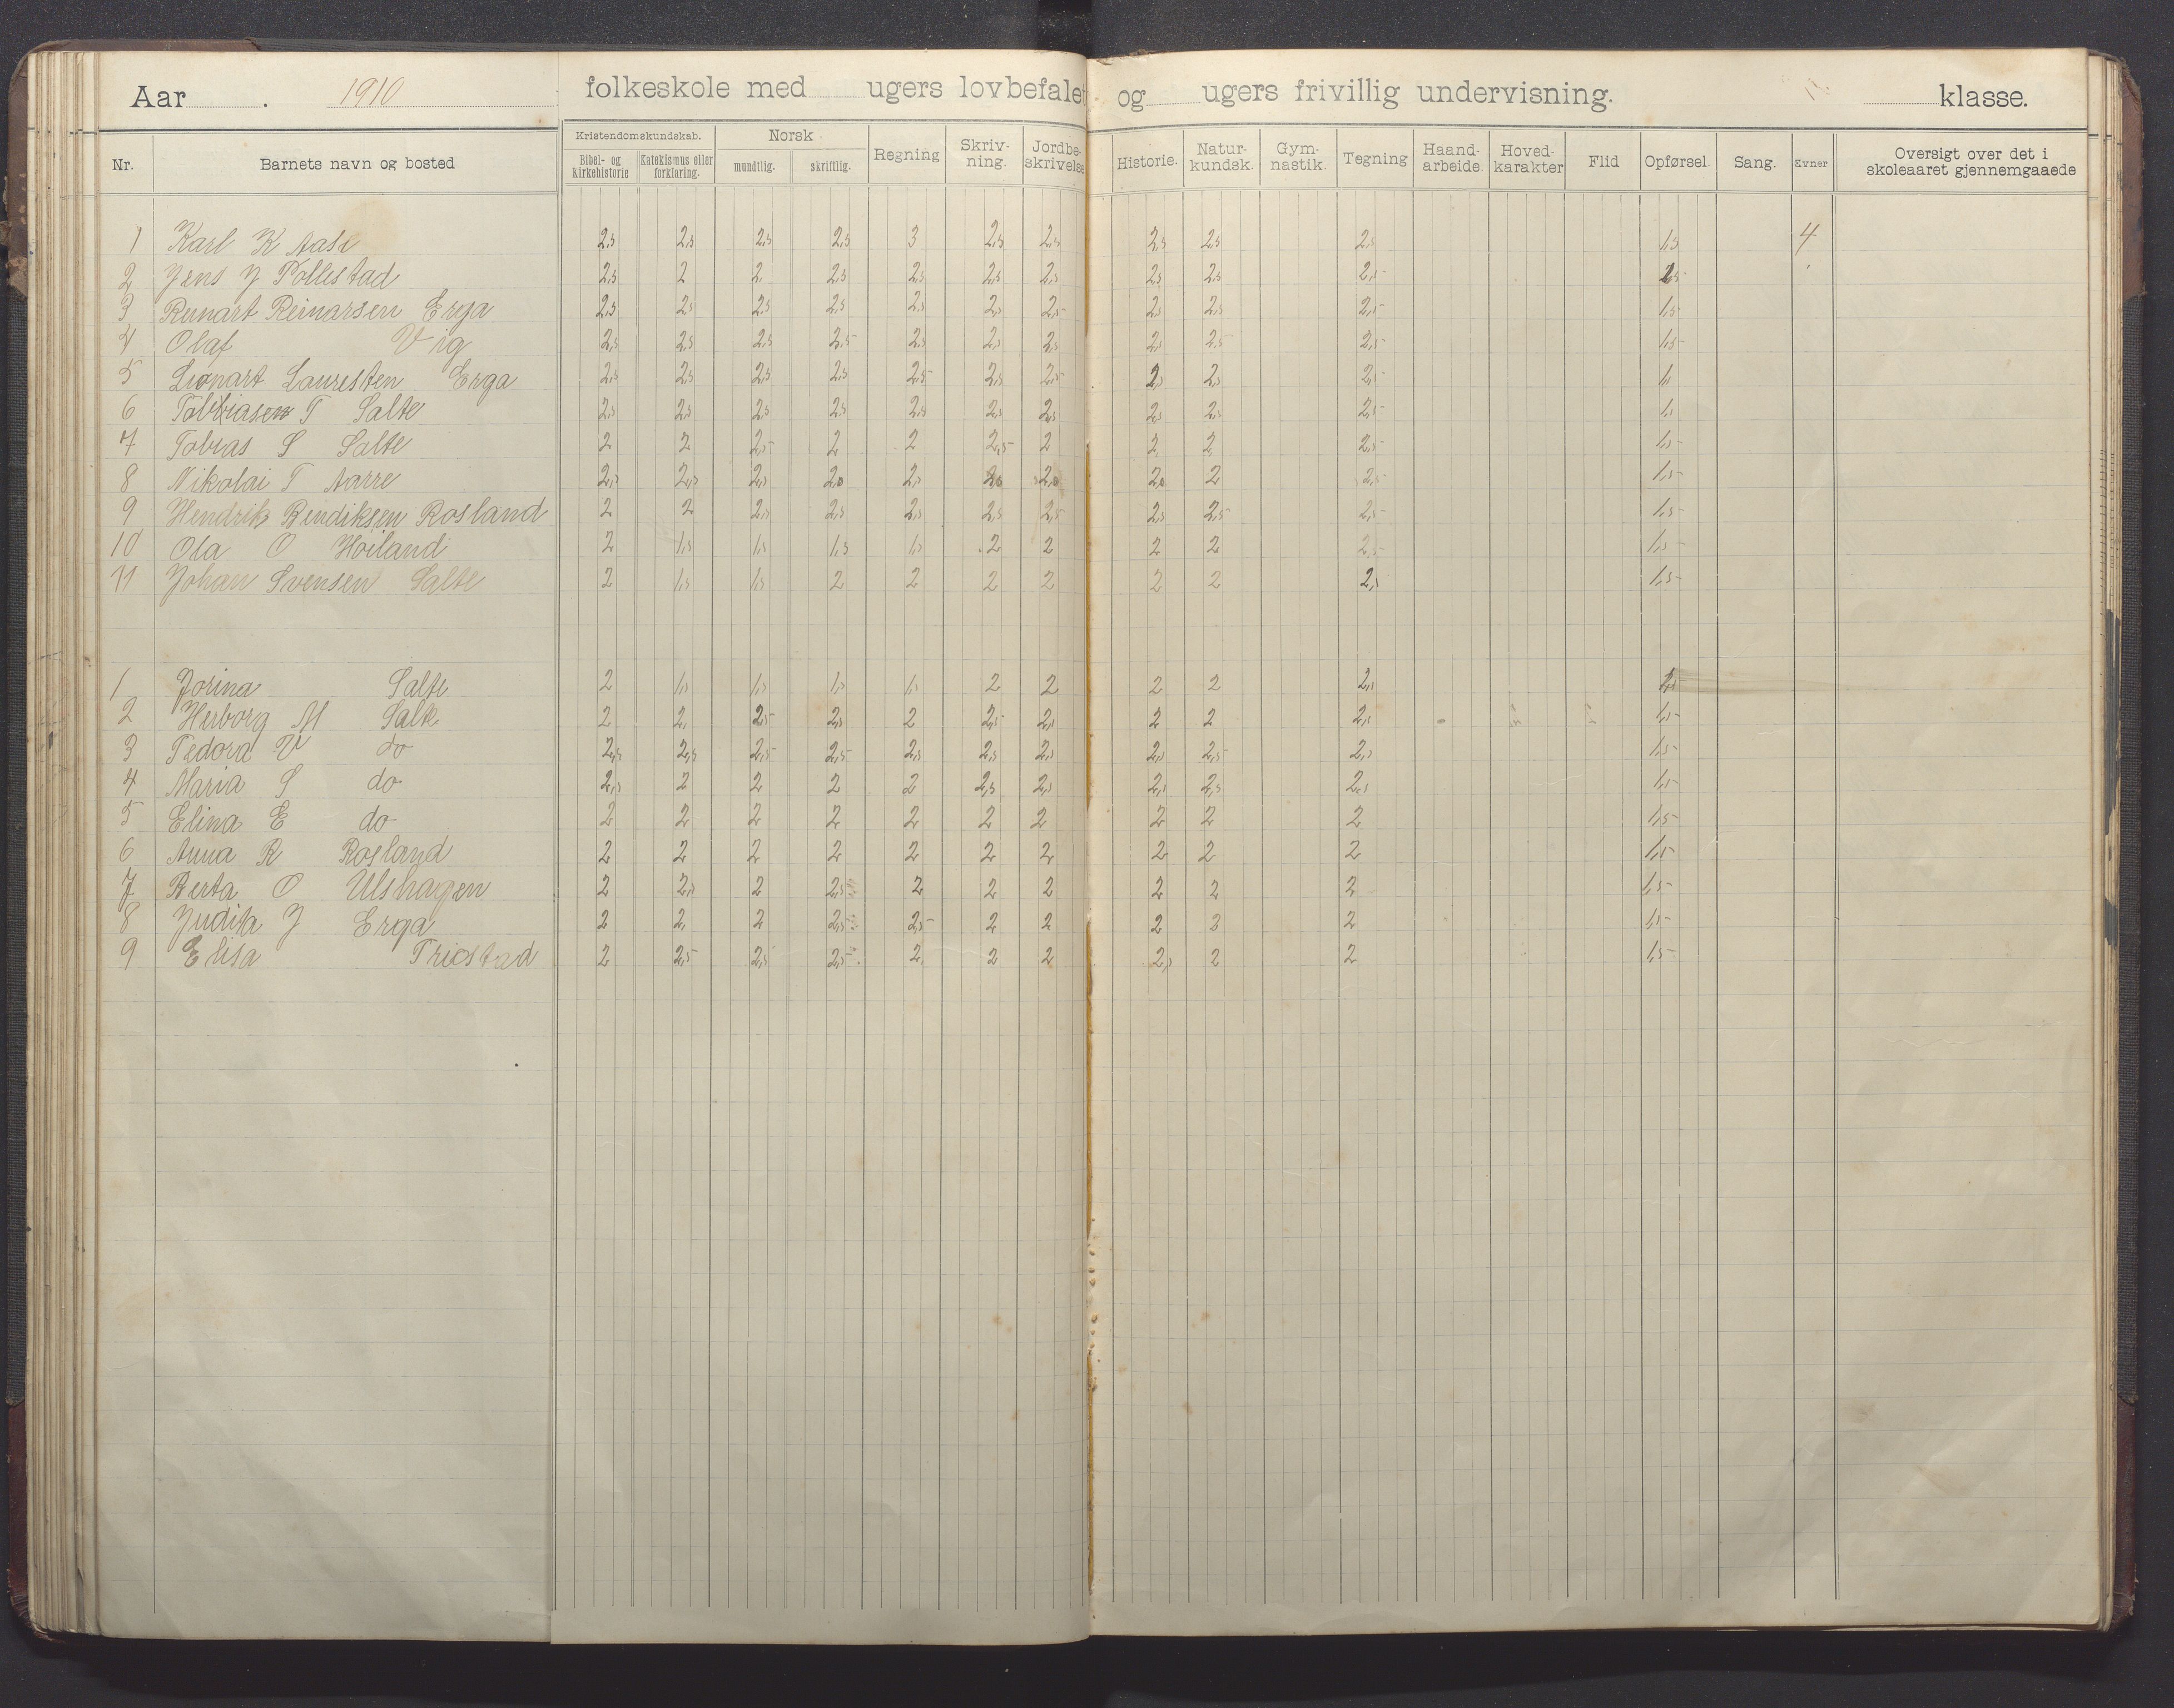 Aar 1910 folkeskole med ugers lovbefalet og ugers frivillig undervisning. klasse.
Nr. Barnets navn og bosted Kristendomskundskab. Bibel- og kirkehistorie Katekismus eller forklaring. Norsk mundtlig. skriftlig. Regning Skriv-ning. Jordbe-skrivelse Historie. Natur-kundsk. Gym-nastik. Tegning Haand-arbeide. Hoved-karakter Flid Opførsel. Sang. Evner Oversigt over det i skoleaaret gjennemgaaede
1 Karl K Aase 2,5 2,5 2,5 2,5 3 2,5 2,5 2,5 2,5 2,5 1,5 4
2 Jens J Pollestad 2,5 2 2 2,5 2,5 2,5 2,5 2,5 2,5 2,5
3 Reinarsen Erga 2,5 2,5 2,5 2,5 2,5 2,5 2,5 2,5 2,5 2,5 1,5
4 Olaf Vig 2,5 2,5 2,5 2,5 2,5 2,5 2,5 2,5 2,5 2,5 1,5
5 Lauresten Erga 2,5 2,5 2,5 2,5 2,5 2,5 2,5 2,5 2,5 2,5
6 T Salte 2,5 2,5 2,5 2,5 2,5 2,5 2,5 2,5 2,5 2,5
7 Tobias S Salte 2 2 2,5 2 2 2,5 2 2 2 2,5 1,5
8 Nikolai T Aarre 2,5 2,5 2,5 2,5 2 2,5 1,5
9 Hendrik Bendiksen Rosland 2 2 2,5 2,5 2,5 2,5 2,5 2,5 2,5 2,5 1,5
10 Ola O Høiland 2 1,5 1,5 1,5 1,5 2 2 2 2 2,5 1,5
11 Johan Svensen Salte 2 1,5 1,5 2 2 2 2 2 2 2,5 1,5
1 Jorina Salte 2 1,5 1,5 1,5 1,5 2 2 2 2 2,5
2 Herborg M Salte 2 2 2,5 2,5 2 2,5 2,5 2 2 2,5 1,5
3 Tedora V do 2,5 2,5 2,5 2,5 2,5 2,5 2,5 2,5 2,5 2,5 1,5
4 Maria S do 2,5 2 2 2 2 2,5 2,5 2,5 2,5 2,5 1,5
5 Elina E do 2 2 2 2 2 2 2 2 2 2 1,5
6 Anna R Rosland 2 2 2 2 2 2 2 2 2 2 1,5
7 Berta O Ulshagen 2 2,5 2 2,5 2 2 2 2 2 2 1,5
8 Judita J Erga 2 2 2 2,5 2,5 2 2 2 2 2 1,5
9 Elisa Friestad 2 2,5 2,5 2,5 2 2 2 2,5 2 2 1,5